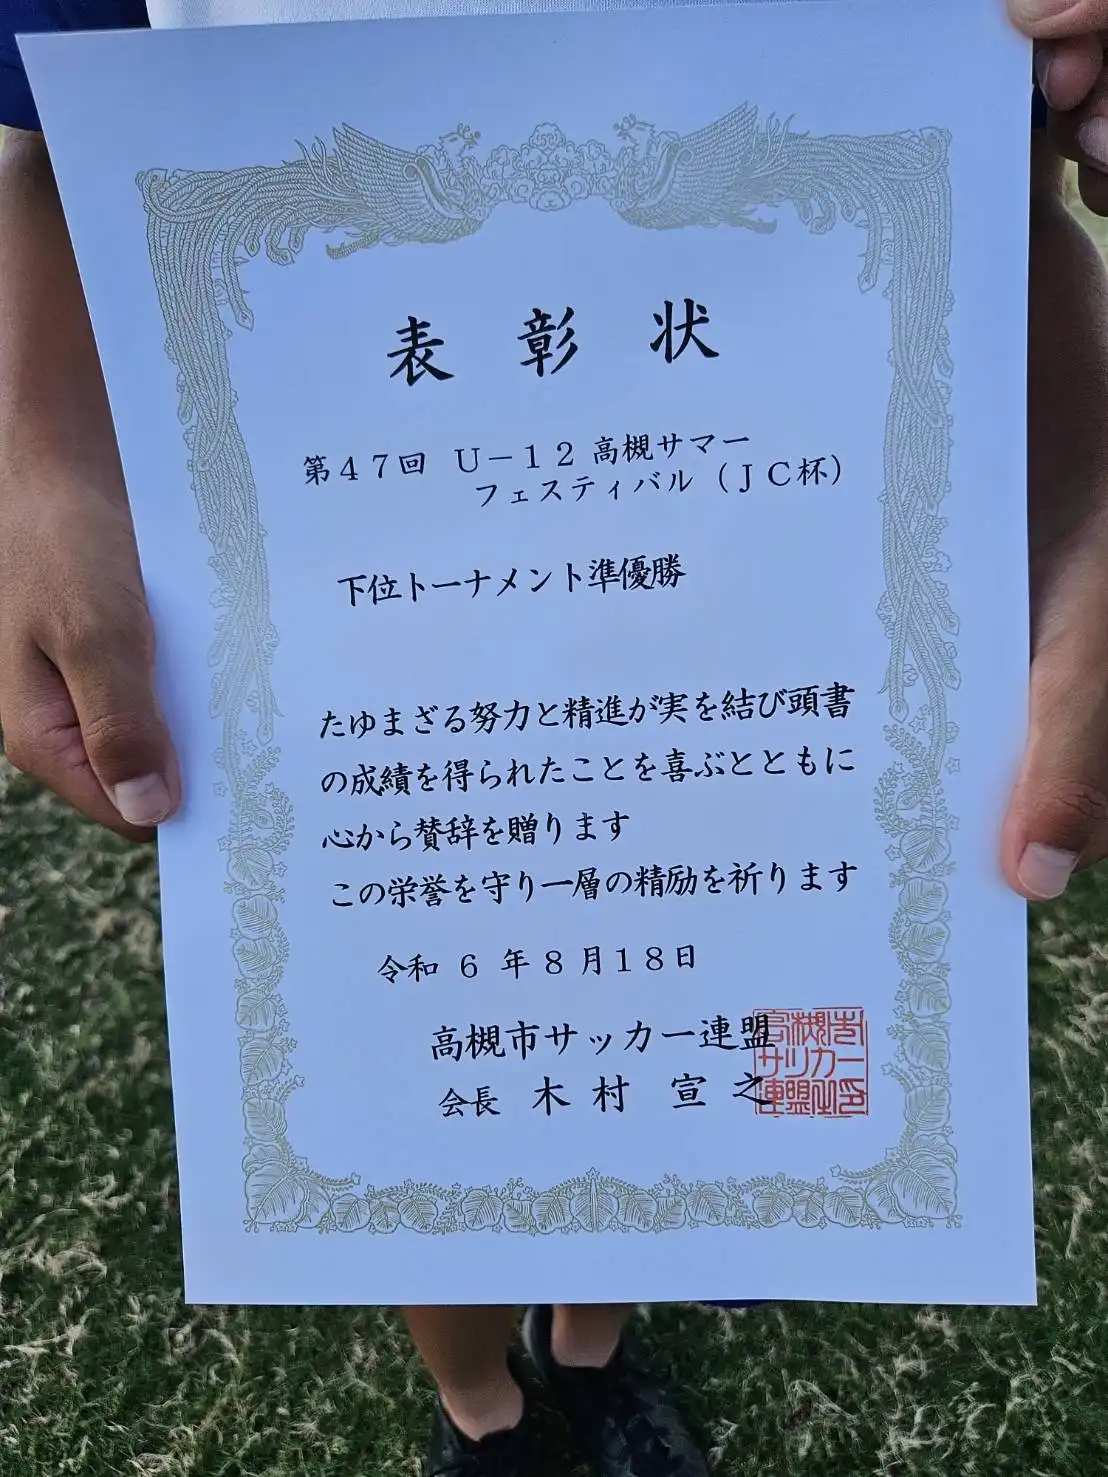 表彰状
第47回 U－12 高槻サマー
フェスティバル（JC杯）
下位トーナメント準優勝
たゆまざる努力と精進が実を結び頭書
の成績を得られたことを喜ぶとともに
心から賛辞を贈ります
この栄誉を守り一層の精励を祈ります
令和 6 年 8 月18日
高槻市サッカー連盟
会長 木村 宣之
高槻市
サッカー
連盟之印